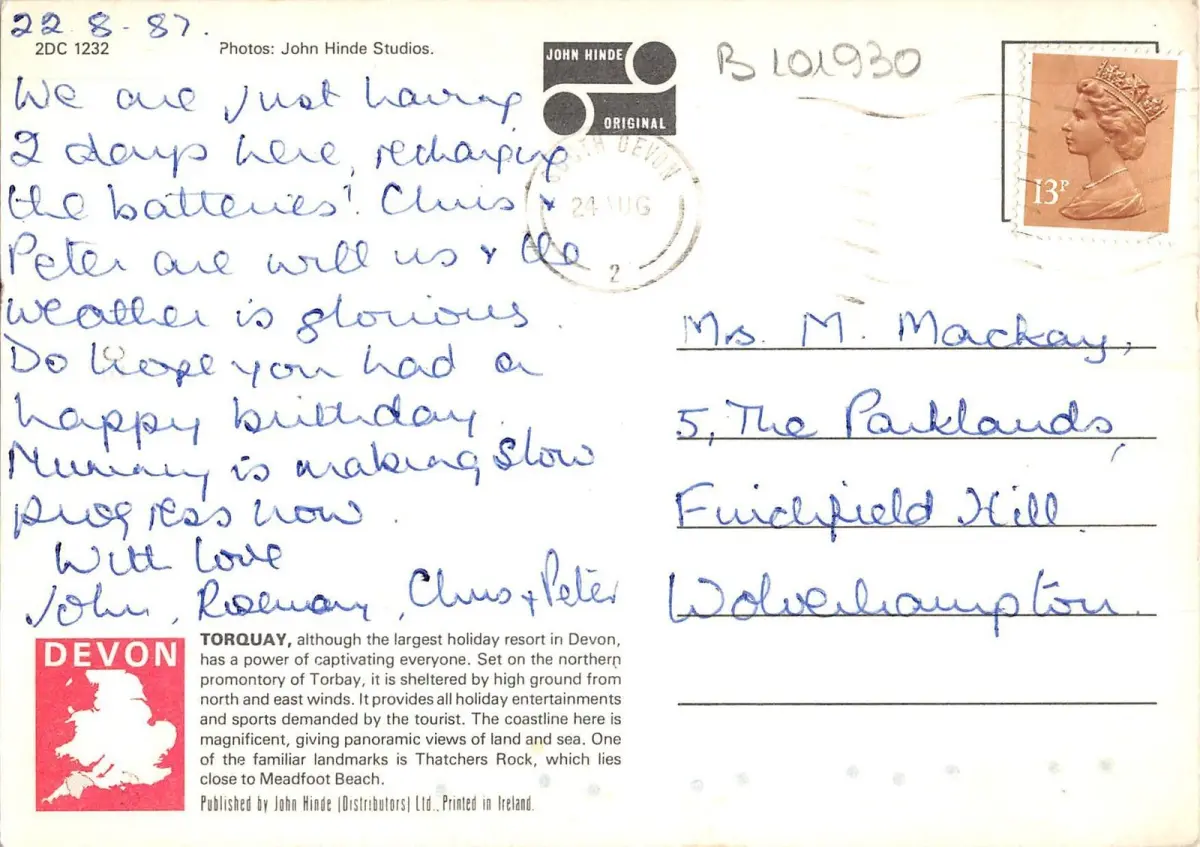 22-8-87.
2DC 1232
Photos: John Hinde Studios.
We are just having
2 days here, recharging
the batteries! Chris &
Peter are will us & the
weather is glorious.
Do hope you had a
happy birthday.
Mummy is making slow
progress now.
With love
John, Rosemary, Chris & Peter
DEVON
TORQUAY, although the largest holiday resort in Devon,
has a power of captivating everyone. Set on the northern
promontory of Torbay, it is sheltered by high ground from
north and east winds. It provides all holiday entertainments
and sports demanded by the tourist. The coastline here is
magnificent, giving panoramic views of land and sea. One
of the familiar landmarks is Thatchers Rock, which lies
close to Meadfoot Beach.
Published by John Hinde (Distributors) Ltd., Printed in Ireland.
JOHN HINDE
ORIGINAL
DEVON
24 AUG
2
B 101930
13P
Mrs. M. Mackay,
5, The Parklands,
Finchfield Hill.
Wolverhampton.